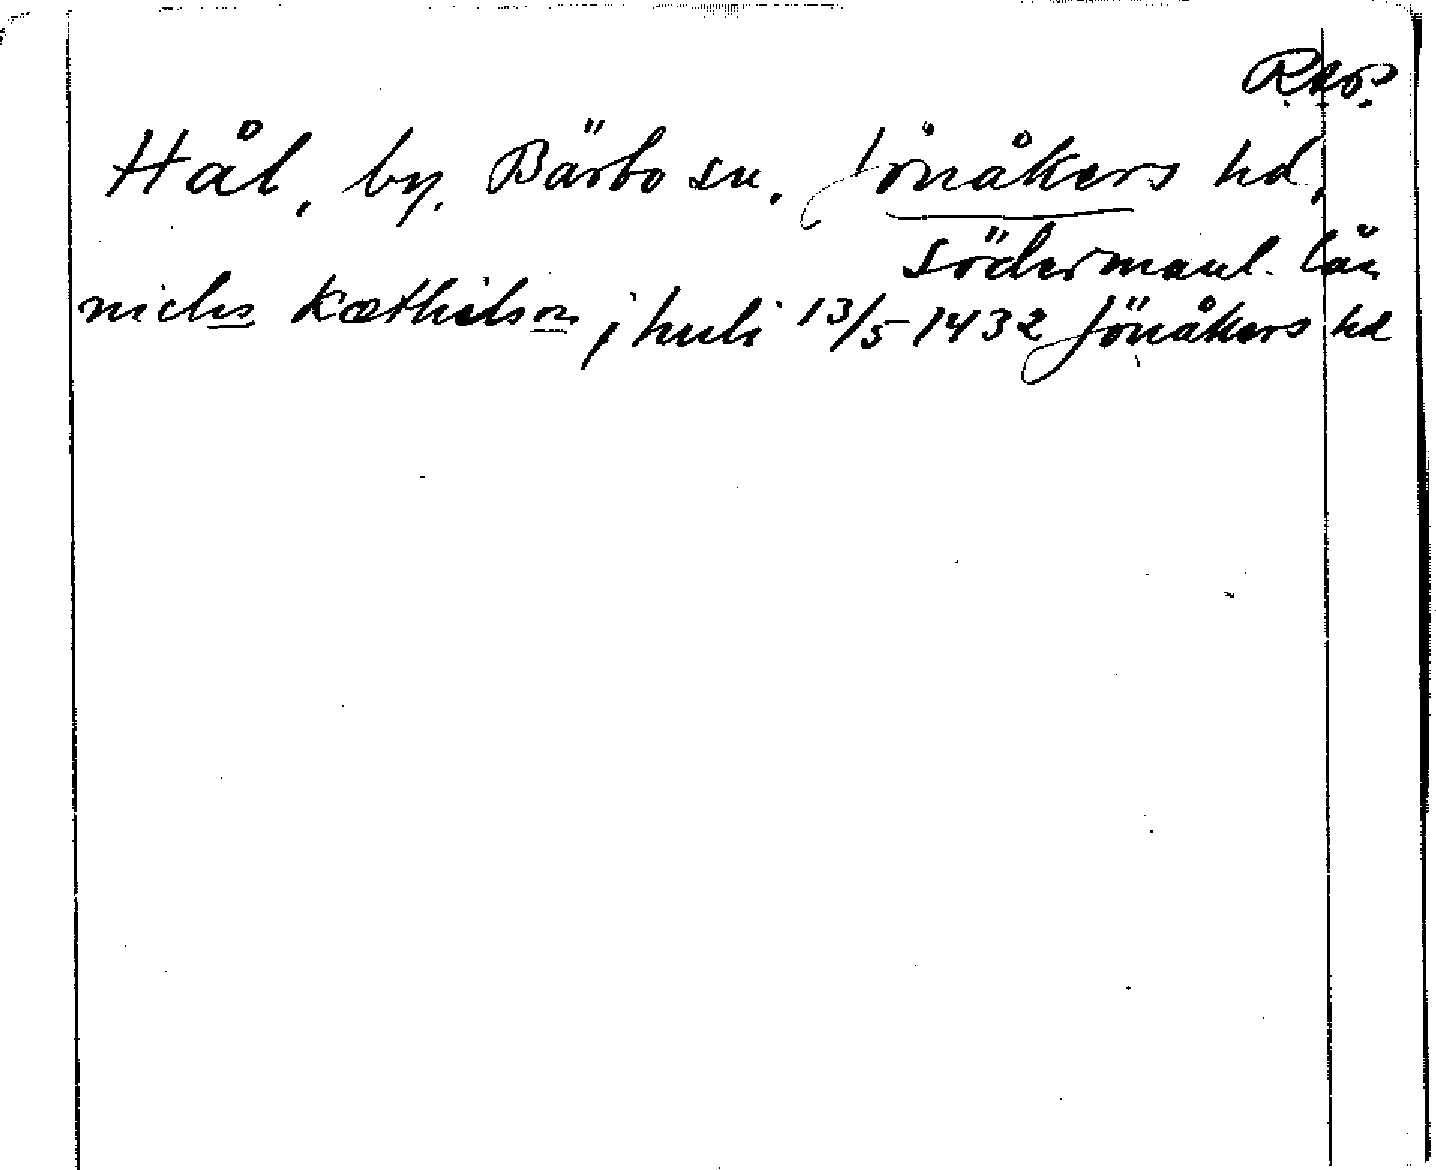 Rep.
Hål, by. Bärbo sn. Jönåkers hd,
Södermanl. län
niclis Kæthilson j huli 13/5 1432 Jönåkers hd